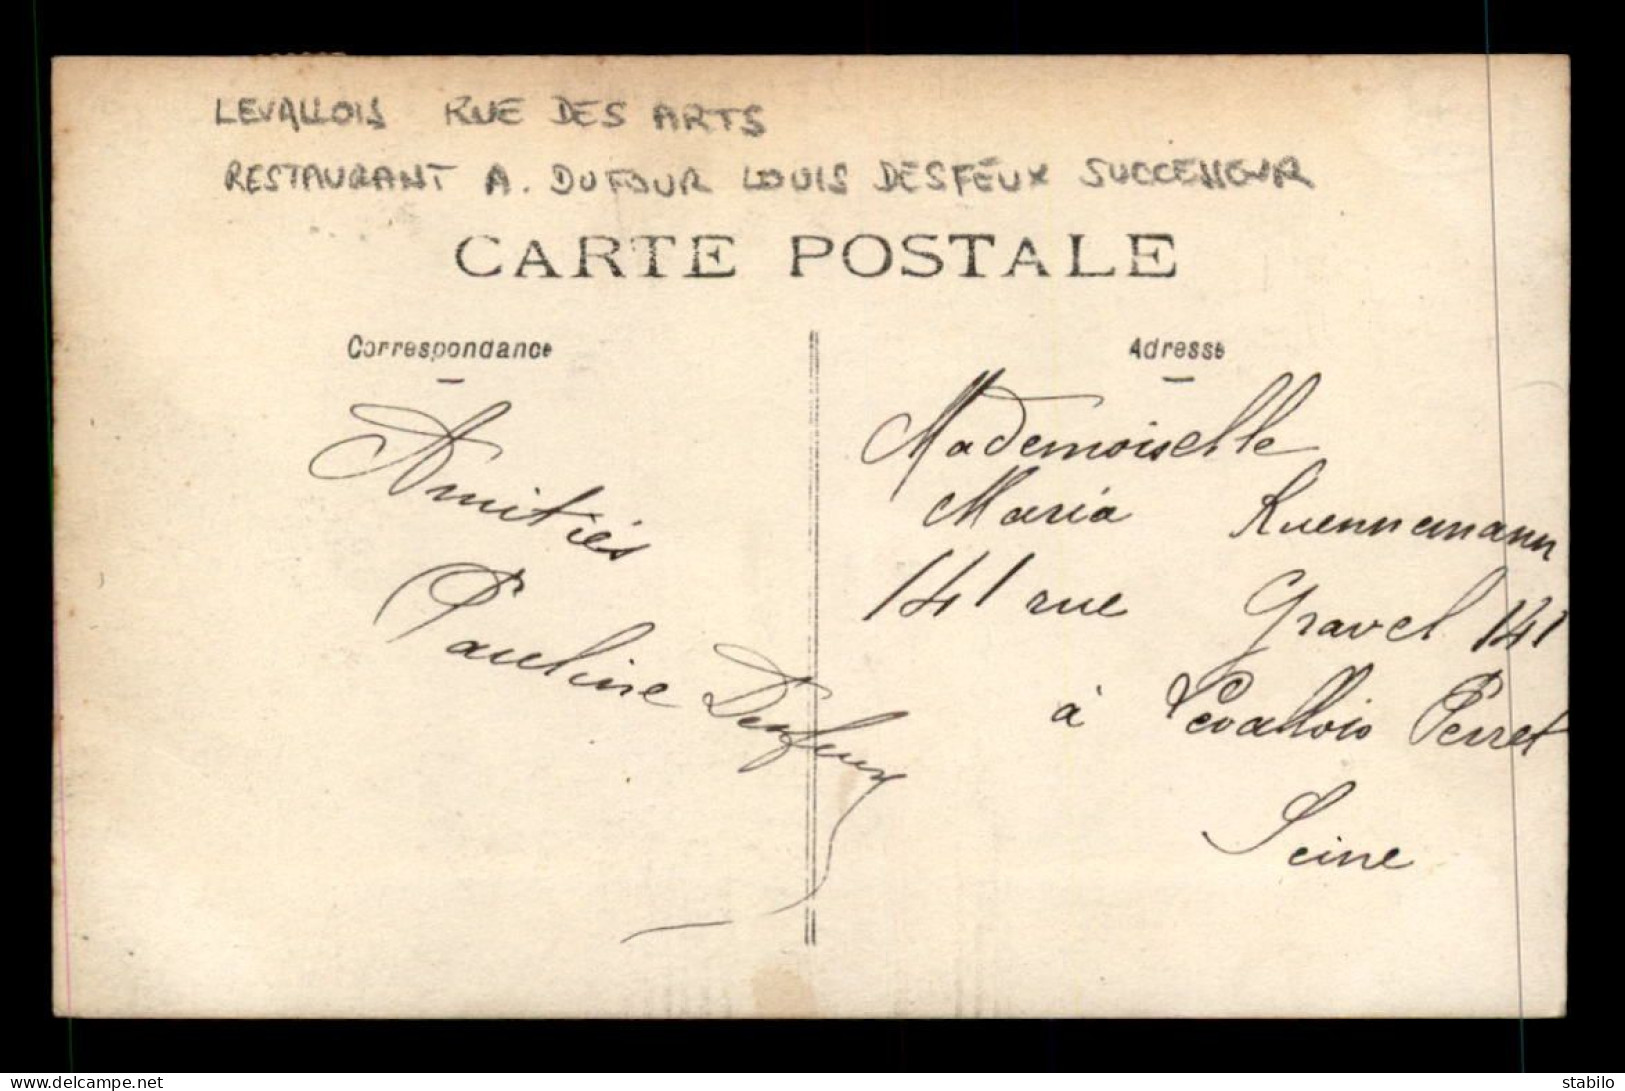 LEVALLOIS RUE DES ARTS
RESTAURANT A. DUFOUR LOUIS DESFEUX SUCCESSEUR
CARTE POSTALE
Correspondance
Amitiés
Pauline Desfeux
Adresse
Mademoiselle
Maria Kuennemann
141 rue Gravel 141
à Levallois Perret
Seine
the-stamps.com
stabilo